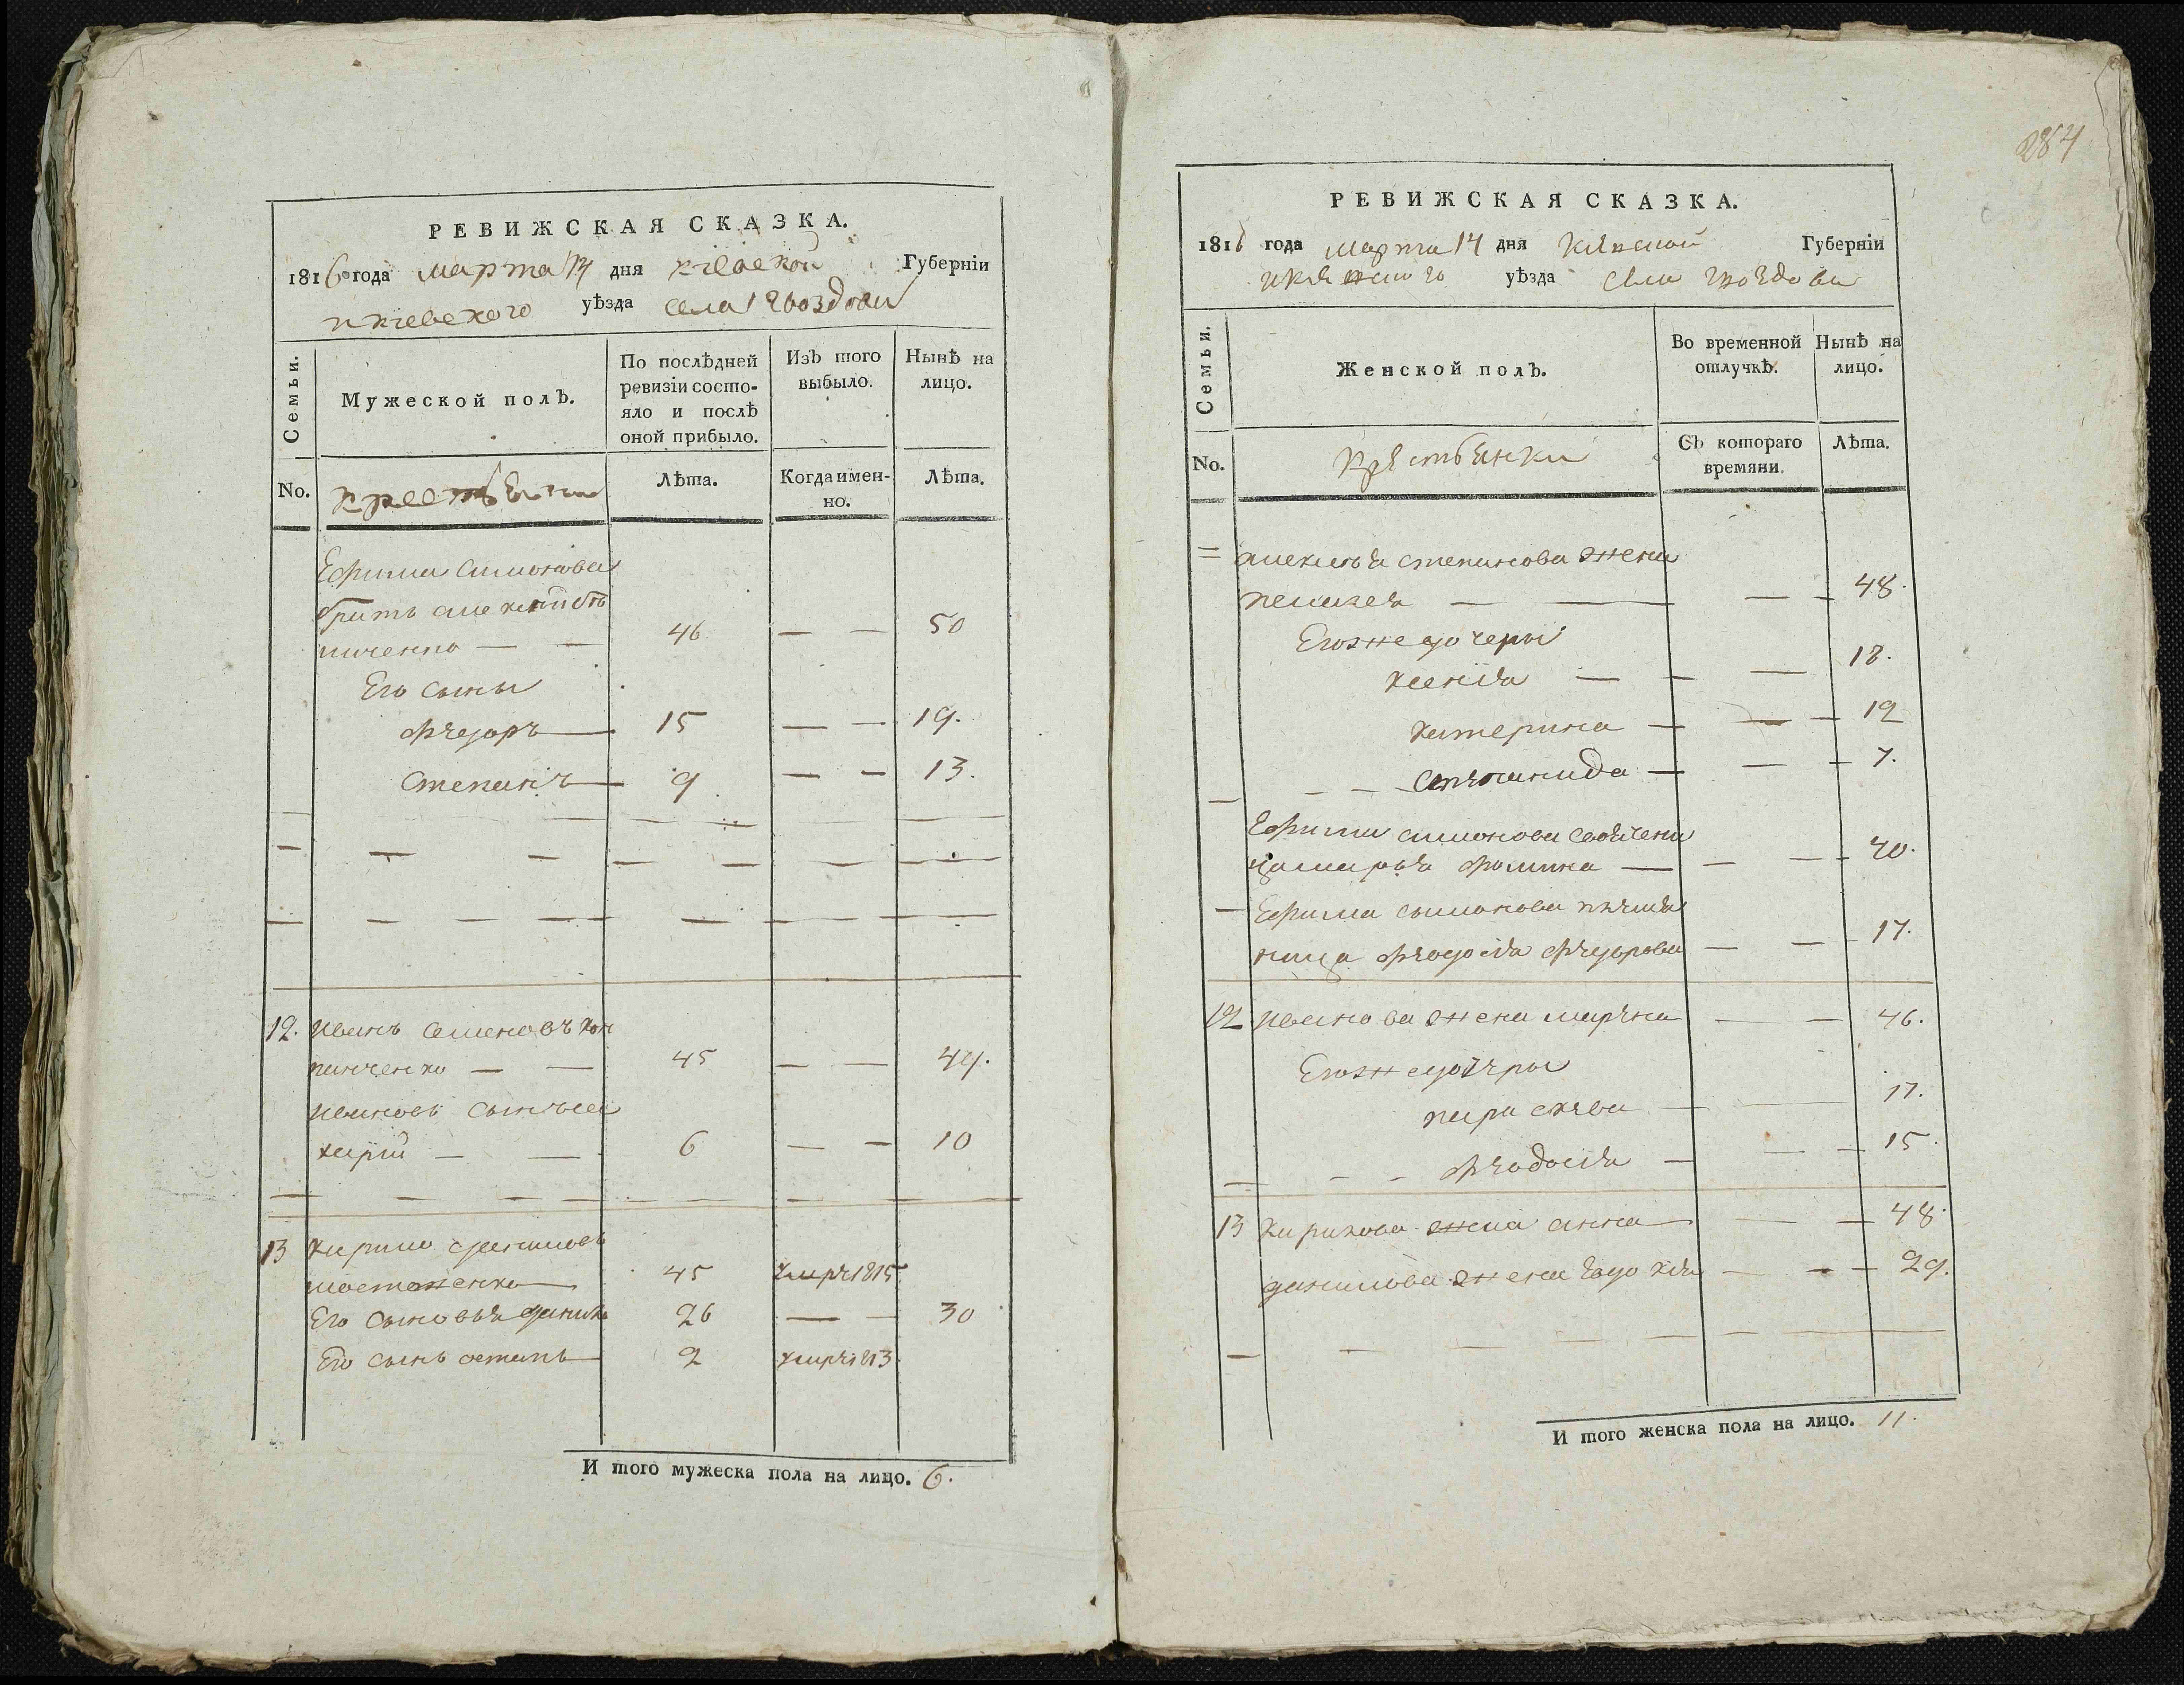 РЕВИЖСКАЯ СКАЗКА.
1816 года марта 14 дня кіевской Губерніи
и кіевского уѣзда села Гвоздова
Семьи.
Мужеской полЪ.
По послѣдней ревизіи состояло и послѣ оной прибыло.
ИзЪ того выбыло.
Нынѣ на лицо.
No.
крестьяни
Лѣта.
Когда именно.
Лѣта.
Ефима симонова
братъ алексѣй
46 — — 50
Его сыны
Фѣдоръ — 15 — — 19.
Степанъ — 9 — — 13.
12. Иванъ Семеновъ
— — 45 — — 49.
Ивановъ сынъ
— — 6 — — 10
13 Кирило даниловъ
45 умре 1815
Его сыновья данило 26 — — 30
Его сынъ остапъ — 2 умре 1813
И того мужеска пола на лицо. 6.
284
РЕВИЖСКАЯ СКАЗКА.
1816 года марта 14 дня Губерніи
уѣзда села гвоздова
Семьи.
Женской полЪ.
Во временной отлучкѣ.
Нынѣ на лицо.
No.
крестьянки
СЪ котораго времяни.
Лѣта.
алексѣя степанова жена
пелагея — — — 48.
Его же дочеры
ксенія — — — 18.
катерина — — — 12
степанида — — — 7.
Ефима симонова
— — — 40.
Ефима симонова племя
ница феодосія фѣдорова — — 17.
12 Иванова жена марѣна — — 46.
Его же дочеры
параскева — — 17.
феодосія — — — 15.
13 кирилова жена анна — — 48.
данилова жена евдокія — — 29.
И того женска пола на лицо. 11.